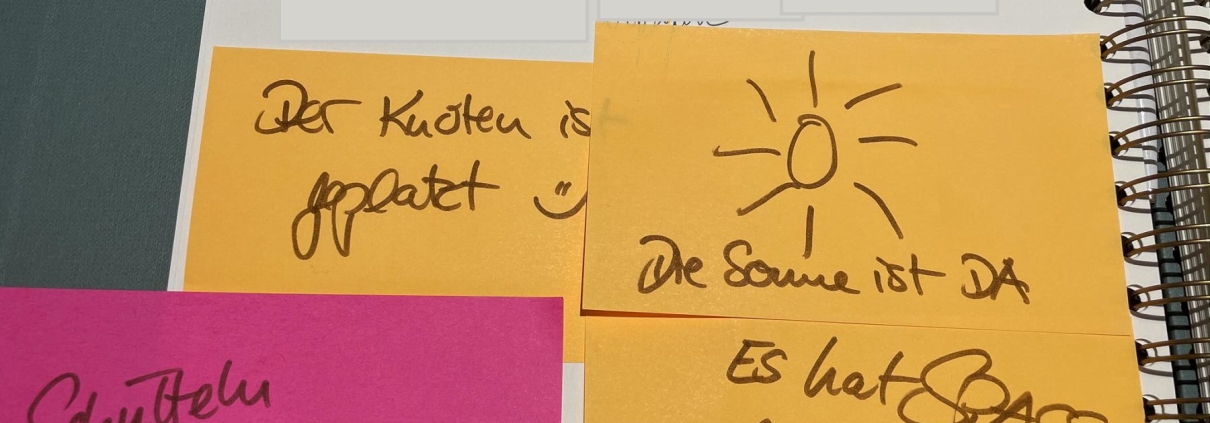 Der Knoten ist
geplatzt
Die Sonne ist DA
Es hat SPASS
Schütteln